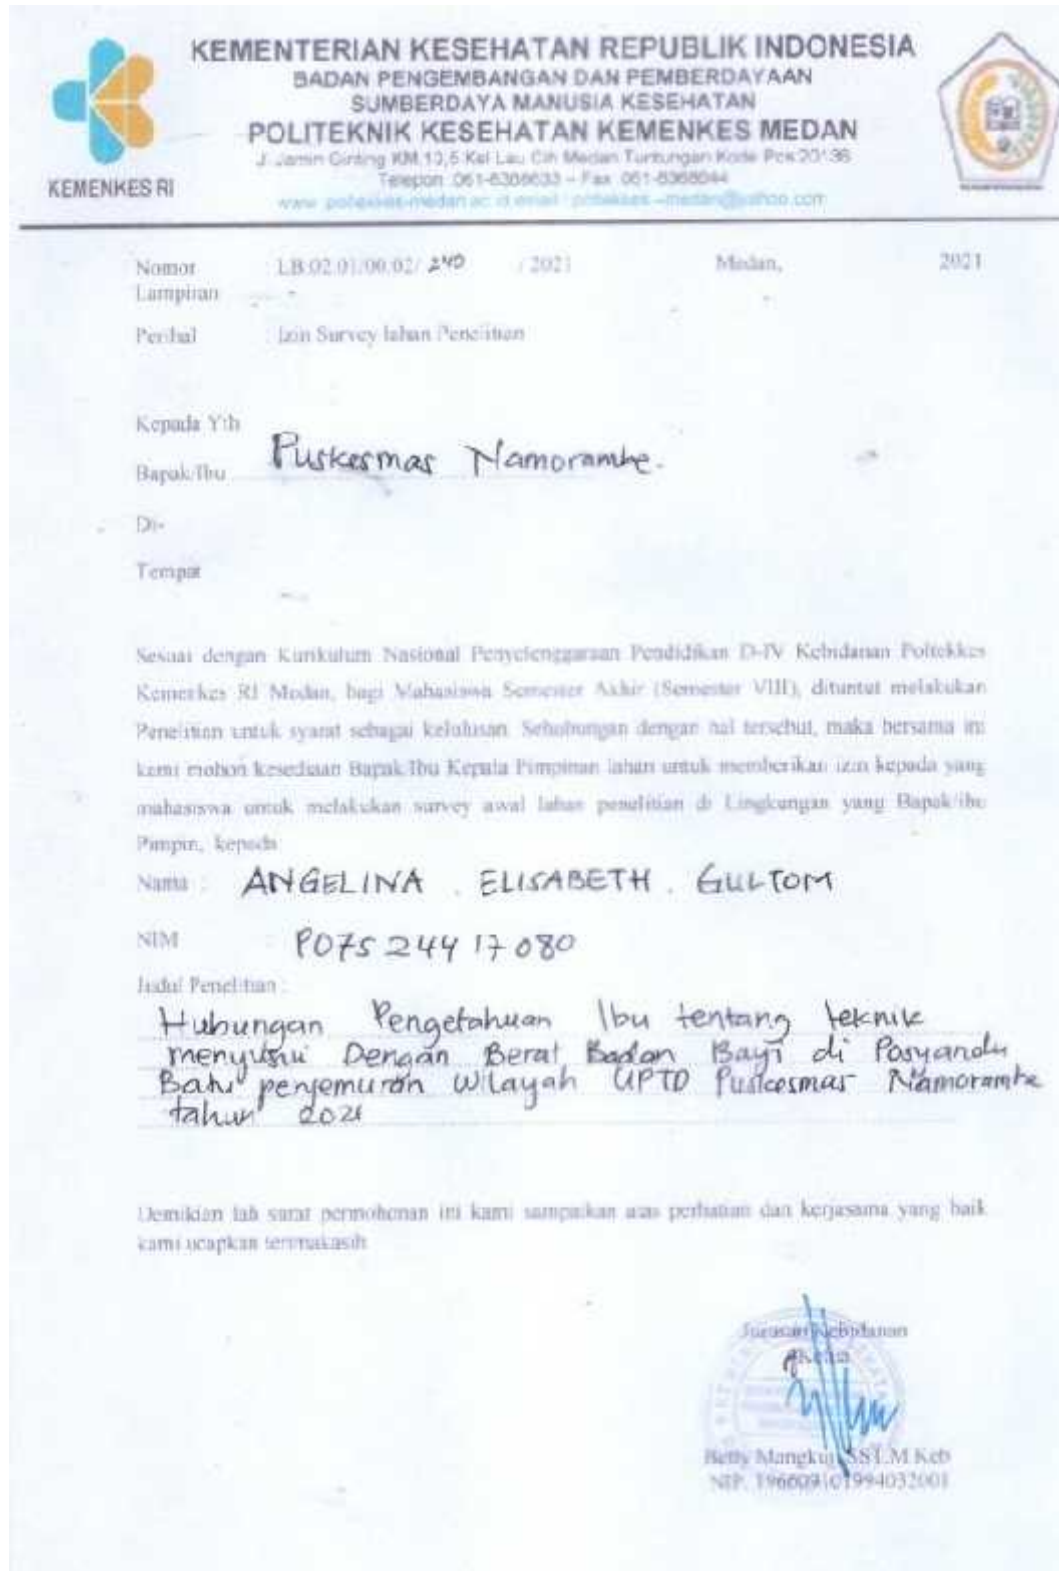 KEMENTERIAN KESEHATAN REPUBLIK INDONESIA
BADAN PENGEMBANGAN DAN PEMBERDAYAAN
SUMBERDAYA MANUSIA KESEHATAN
POLITEKNIK KESEHATAN KEMENKES MEDAN
Jl. Jamin Ginting KM 13,5 Kel Lau Cih Medan Tuntungan Kode Pos 20136
Telepon 061-8368633 – Fax 061-8368644
KEMENKES RI
Nomor : LB.02.01/00.02/ 240 / 2021 Medan, 2021
Lampiran : -
Perihal : Izin Survey lahan Penelitian
Kepada Yth
Bapak/Ibu Puskesmas Namorambe.
Di-
Tempat
Sesuai dengan Kurikulum Nasional Penyelenggaraan Pendidikan D-IV Kebidanan Poltekkes
Kemenkes RI Medan, bagi Mahasiswa Semester Akhir (Semester VIII), dituntut melakukan
Penelitian untuk syarat sebagai kelulusan. Sehubungan dengan hal tersebut, maka bersama ini
kami mohon kesediaan Bapak/Ibu Kepala Pimpinan lahan untuk memberikan izin kepada yang
mahasiswa untuk melakukan survey awal lahan penelitian di Lingkungan yang Bapak/ibu
Pimpin, kepada
Nama : ANGELINA . ELISABETH . GULTOM
NIM : P075 244 17 080
Judul Penelitian :
Hubungan Pengetahuan Ibu tentang teknik
menyusui Dengan Berat Badan Bayi di Posyandu
Batu penjemuran Wilayah UPTD Puskesmas Namorambe
tahun 2021
Demikian lah surat permohonan ini kami sampaikan atas perhatian dan kerjasama yang baik
kami ucapkan terimakasih
Jurusan Kebidanan
Ketua
Betty Mangkuji, SST.M.Keb
NIP. 196609101994032001